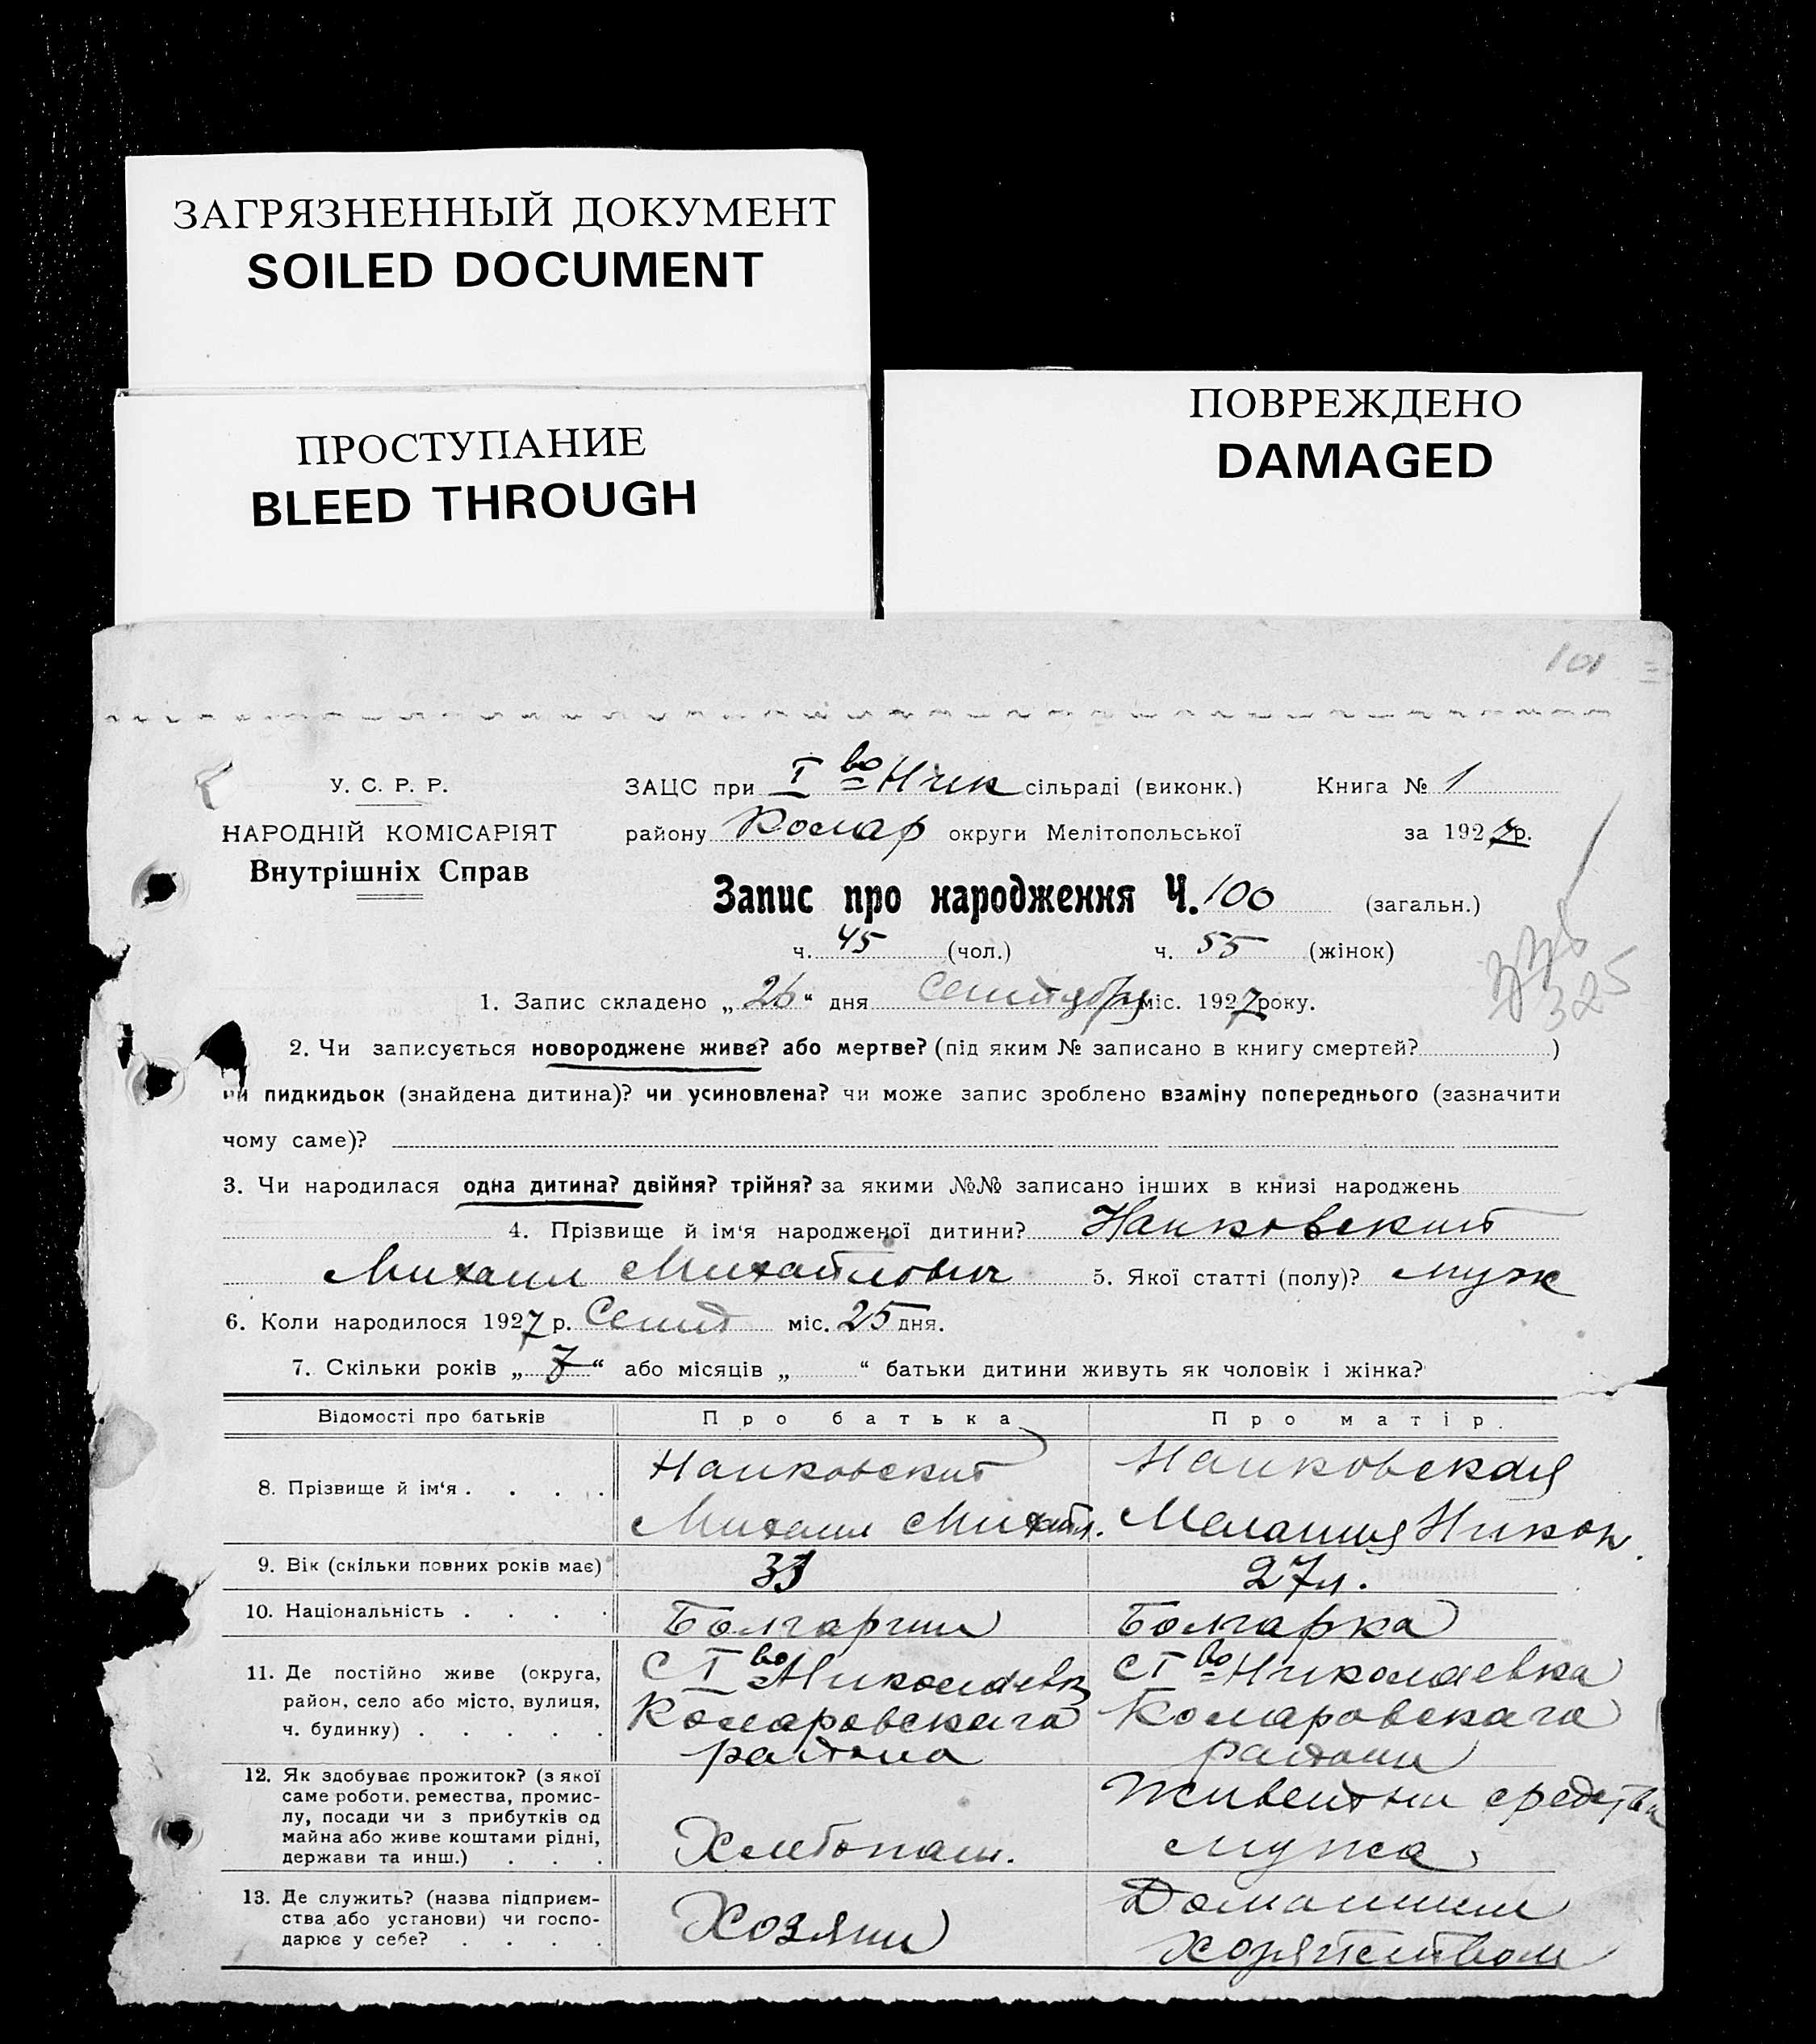 ЗАГРЯЗНЕННЫЙ ДОКУМЕНТ
SOILED DOCUMENT
ПРОСТУПАНИЕ
BLEED THROUGH
ПОВРЕЖДЕНО
DAMAGED
101
У. С. Р. Р.
НАРОДНІЙ КОМІСАРІЯТ
Внутрішніх Справ
ЗАЦС при I во Ник сільраді (виконк.) Книга № 1
району Комар округи Мелітопольської за 1927 р.
Запис про народження Ч. 100 (загальн.)
ч. 45 (чол.) ч. 55 (жінок)
325
1. Запис складено „ 26 “ дня Сентября міс. 1927 року.
2. Чи записується новороджене живе? або мертве? (під яким № записано в книгу смертей? )
чи пидкидьок (знайдена дитина)? чи усиновлена? чи може запис зроблено взаміну попереднього (зазначити
чому саме)?
3. Чи народилася одна дитина? двійня? трійня? за якими №№ записано інших в книзі народжень
4. Прізвище й ім‘я народженої дитини? Наиковский
Михаил Михайлович 5. Якої статті (полу)? муж
6. Коли народилося 1927 р. Сент міс. 25 дня.
7. Скільки років „ 7 “ або місяців „ “ батьки дитини живуть як чоловік і жінка?
Відомості про батьків Про батька Про матір.
8. Прізвище й ім‘я . . . .
Наиковский
Михаил Михайл.
Наиковская
Мелания Никон.
9. Вік (скільки повних років має) 33 27 л.
10. Національність . . . . Болгарин Болгарка
11. Де постійно живе (округа,
район, село або місто, вулиця,
ч. будинку) . . . . .
С I во Николаевка
Комаровскага
района
С I во Николаевка
Комаровскага
района
12. Як здобуває прожиток? (з якої
саме роботи, ремества, промис-
лу, посади чи з прибутків од
майна або живе коштами рідні,
держави та инш.) . . .
Хлебопаш.
Живет на средства
мужа
13. Де служить? (назва підприєм-
ства або установи) чи госпо-
дарює у себе? . . . .
Хозяин
Домашним
хозяйством